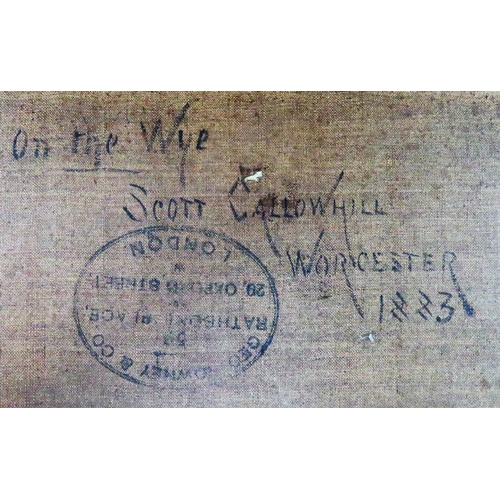 On the Wye
Scott Callowhill
Worcester
1883
GEO ROWNEY & CO
52
RATHBONE PLACE,
&
29, OXFORD STREET
LONDON